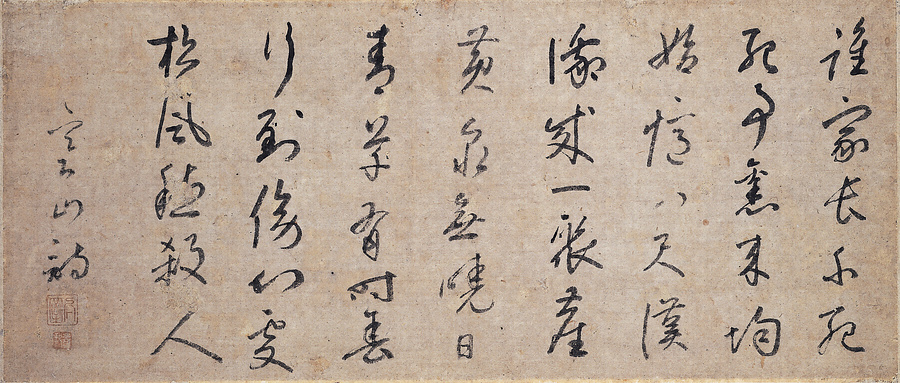 誰家長不死
死事舊來均
始憶八尺漢
俄成一聚塵
黃泉無曉日
青草有時春
行到傷心處
松風愁殺人
寒山詩